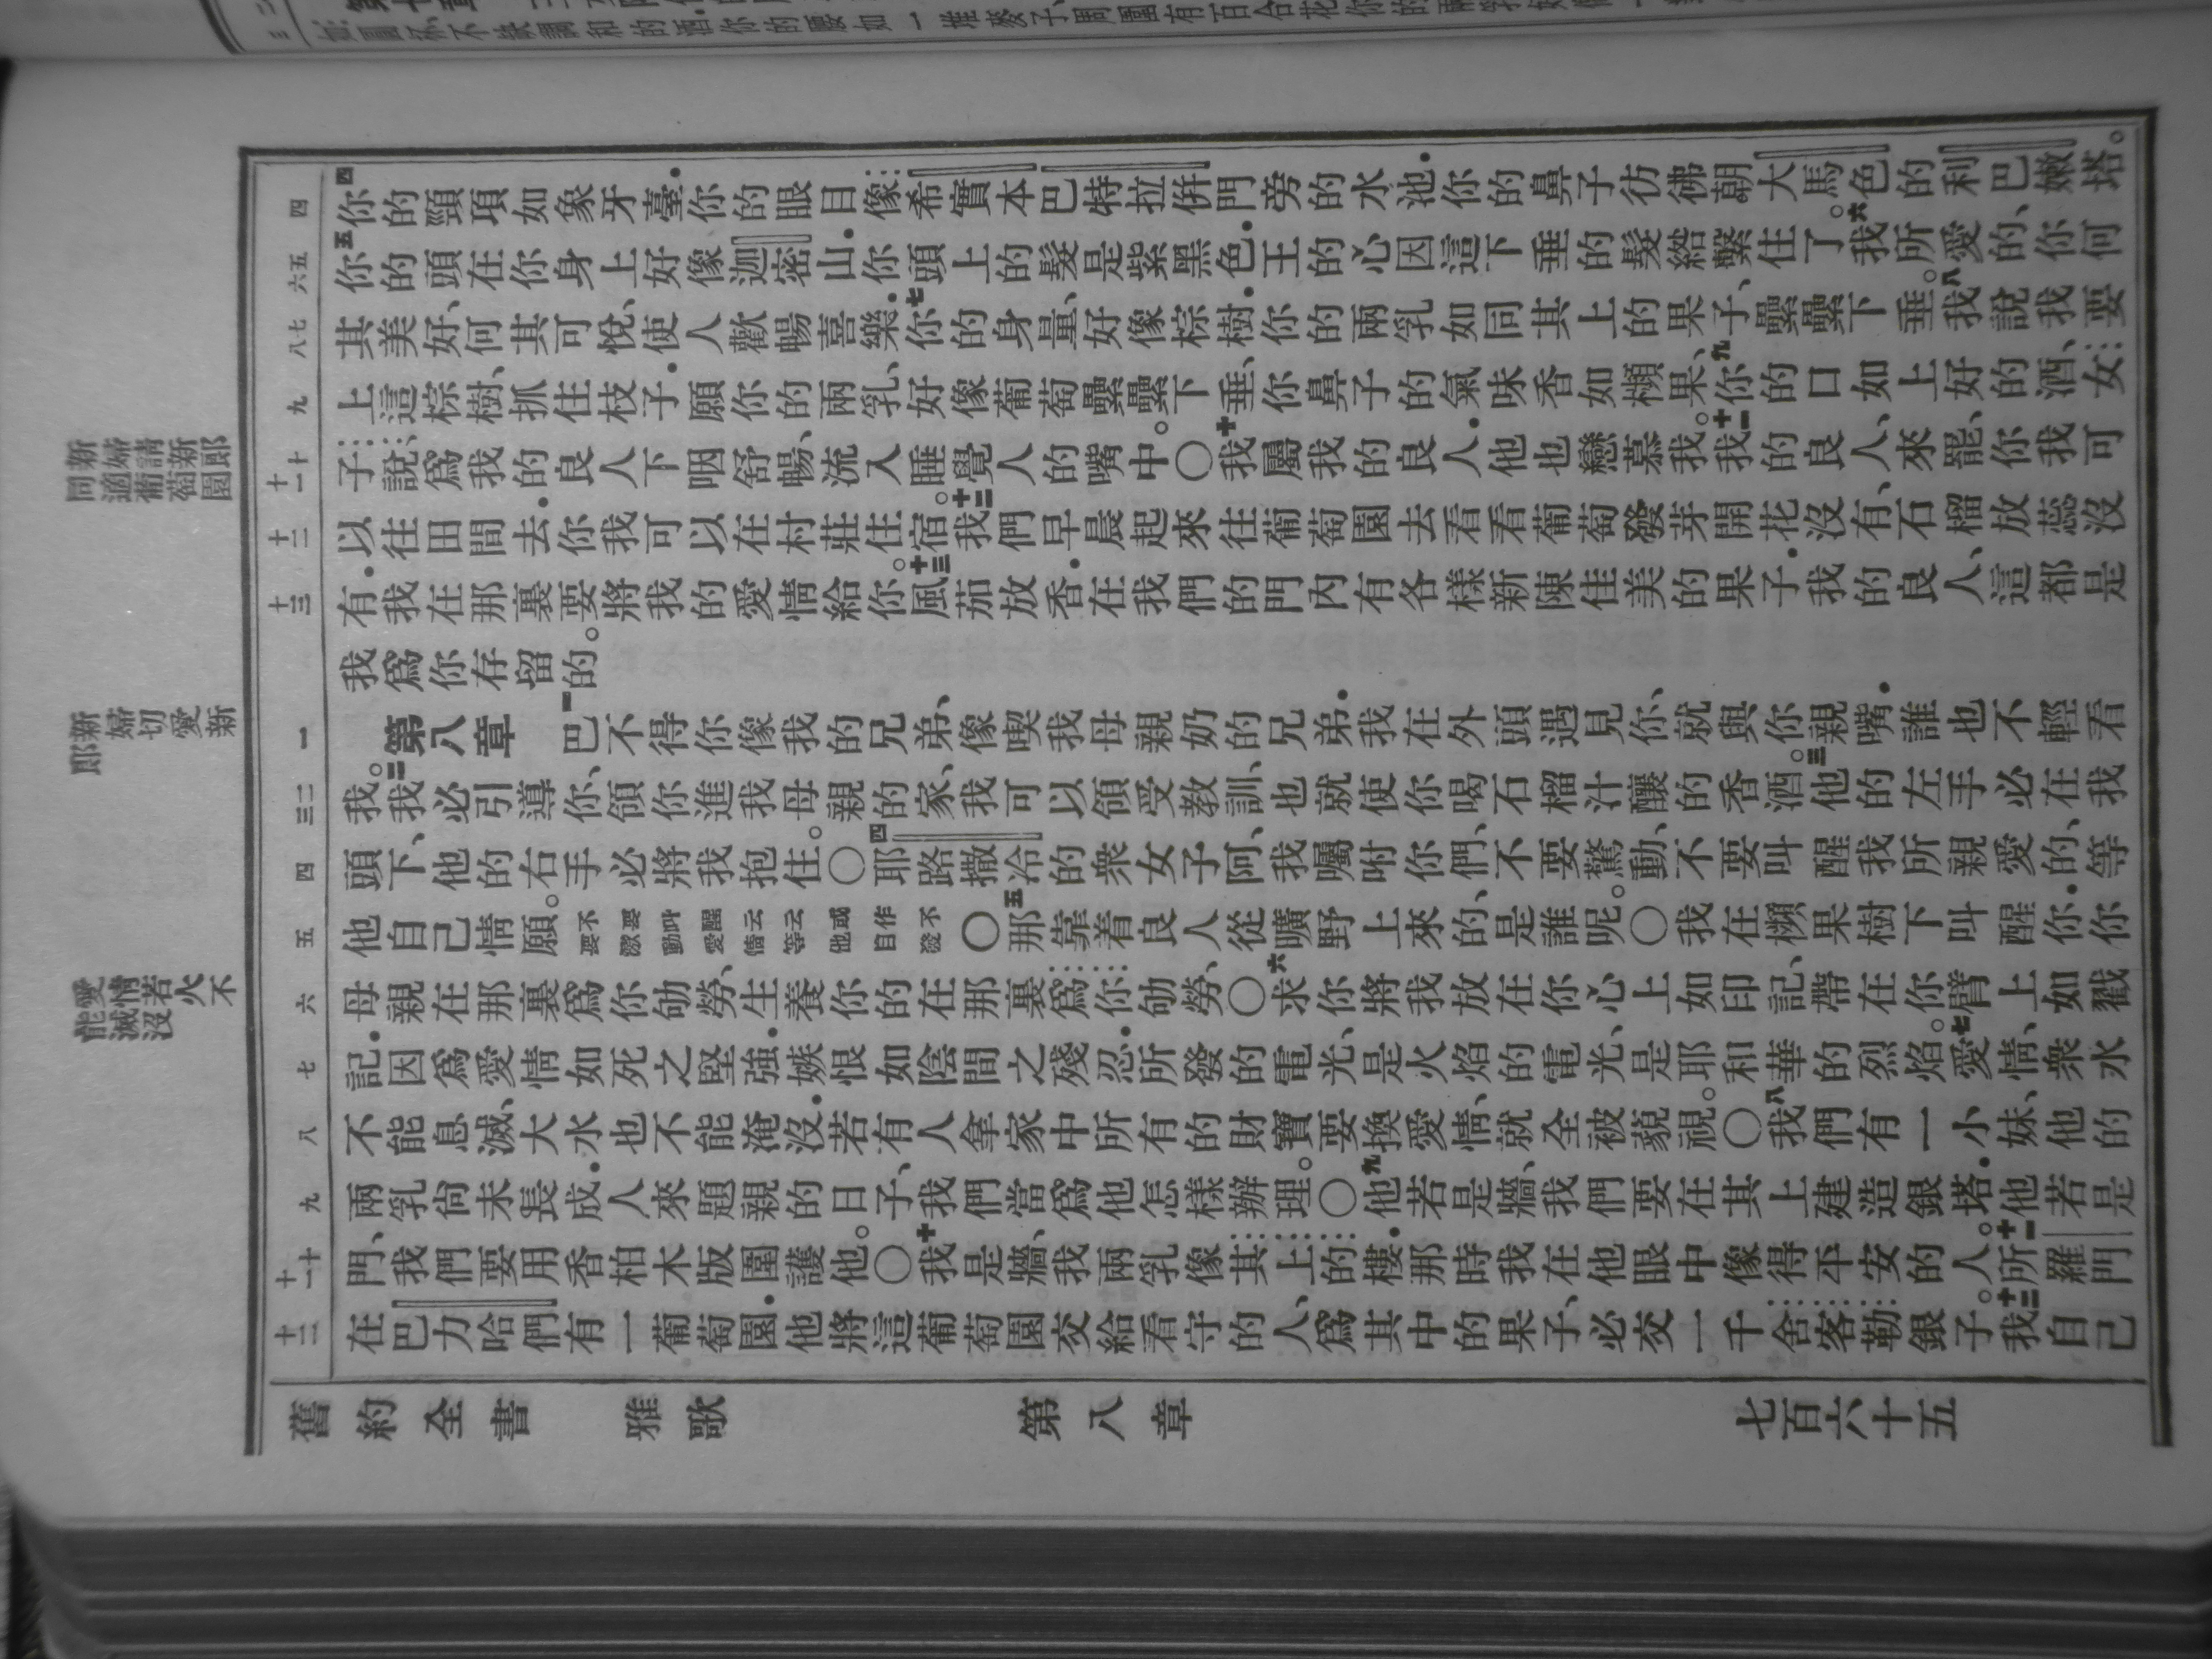 四你的頸項如象牙臺．你的眼目像希實本巴特拉併門旁的水池．你的鼻子彷彿朝大馬色的利巴嫩塔。
五你的頭在你身上好像迦密山．你頭上的髮是紫黑色．王的心因這下垂的髮綹繫住了。六我所愛的、你何
其美好、何其可悅、使人歡暢喜樂．七你的身量、好像棕樹．你的兩乳如同其上的果子、纍纍下垂。八我說、我要
上這棕樹、抓住枝子．願你的兩乳、好像葡萄纍纍下垂、你鼻子的氣味香如檳果、九你的口如上好的酒、女
子說、爲我的良人下咽舒暢、流入睡覺人的嘴中。〇十我屬我的良人．他也戀慕我。十一我的良人、來罷、你我可
以往田間去．你我可以在村莊住宿。十二我們早晨起來往葡萄園去看看葡萄發芽開花沒有、石榴放蕊沒
有．我在那裏要將我的愛情給你。十三風茄放香．在我們的門內有各樣新陳佳美的果子．我的良人、這都是
我爲你存留的。
第八章　一巴不得你像我的兄弟、像喫我母親奶的兄弟．我在外頭遇見你、就與你親嘴．誰也不輕看
我。二我必引導你、領你進我母親的家、我可以領受教訓、也就使你喝石榴汁釀的香酒。三他的左手必在我
頭下、他的右手必將我抱住。〇四耶路撒冷的衆女子阿、我囑咐你們、不要驚動、不要叫醒我所親愛的、等
他自己情願。不要激動愛情等他自發 〇五那靠着良人從曠野上來的、是誰呢。〇我在檳果樹下叫醒你．你
母親在那裏爲你劬勞、生養你的在那裏爲你劬勞、〇六求你將我放在你心上如印記、帶在你臂上如戳
記．因爲愛情如死之堅強．嫉恨如陰間之殘忍．所發的電光、是火焰的電光、是耶和華的烈焰。七愛情、衆水
不能息滅、大水也不能淹沒．若有人拿家中所有的財寶要換愛情、就全被藐視。〇八我們有一小妹、他的
兩乳尙未長成．人來題親的日子、我們當爲他怎樣辦理。〇九他若是牆、我們要在其上建造銀塔．他若是
門、我們要用香柏木版圍護他。〇十我是牆、我兩乳像其上的樓．那時我在他眼中像得平安的人。十一所羅門
在巴力哈們有一葡萄園．他將這葡萄園交給看守的人、爲其中的果子、必交一千舍客勒銀子。十二我自己
新婦請新郎
同適葡萄園
新婦切愛新
郎
愛情若火不
能滅沒
舊約全書　雅歌　第八章　七百六十五